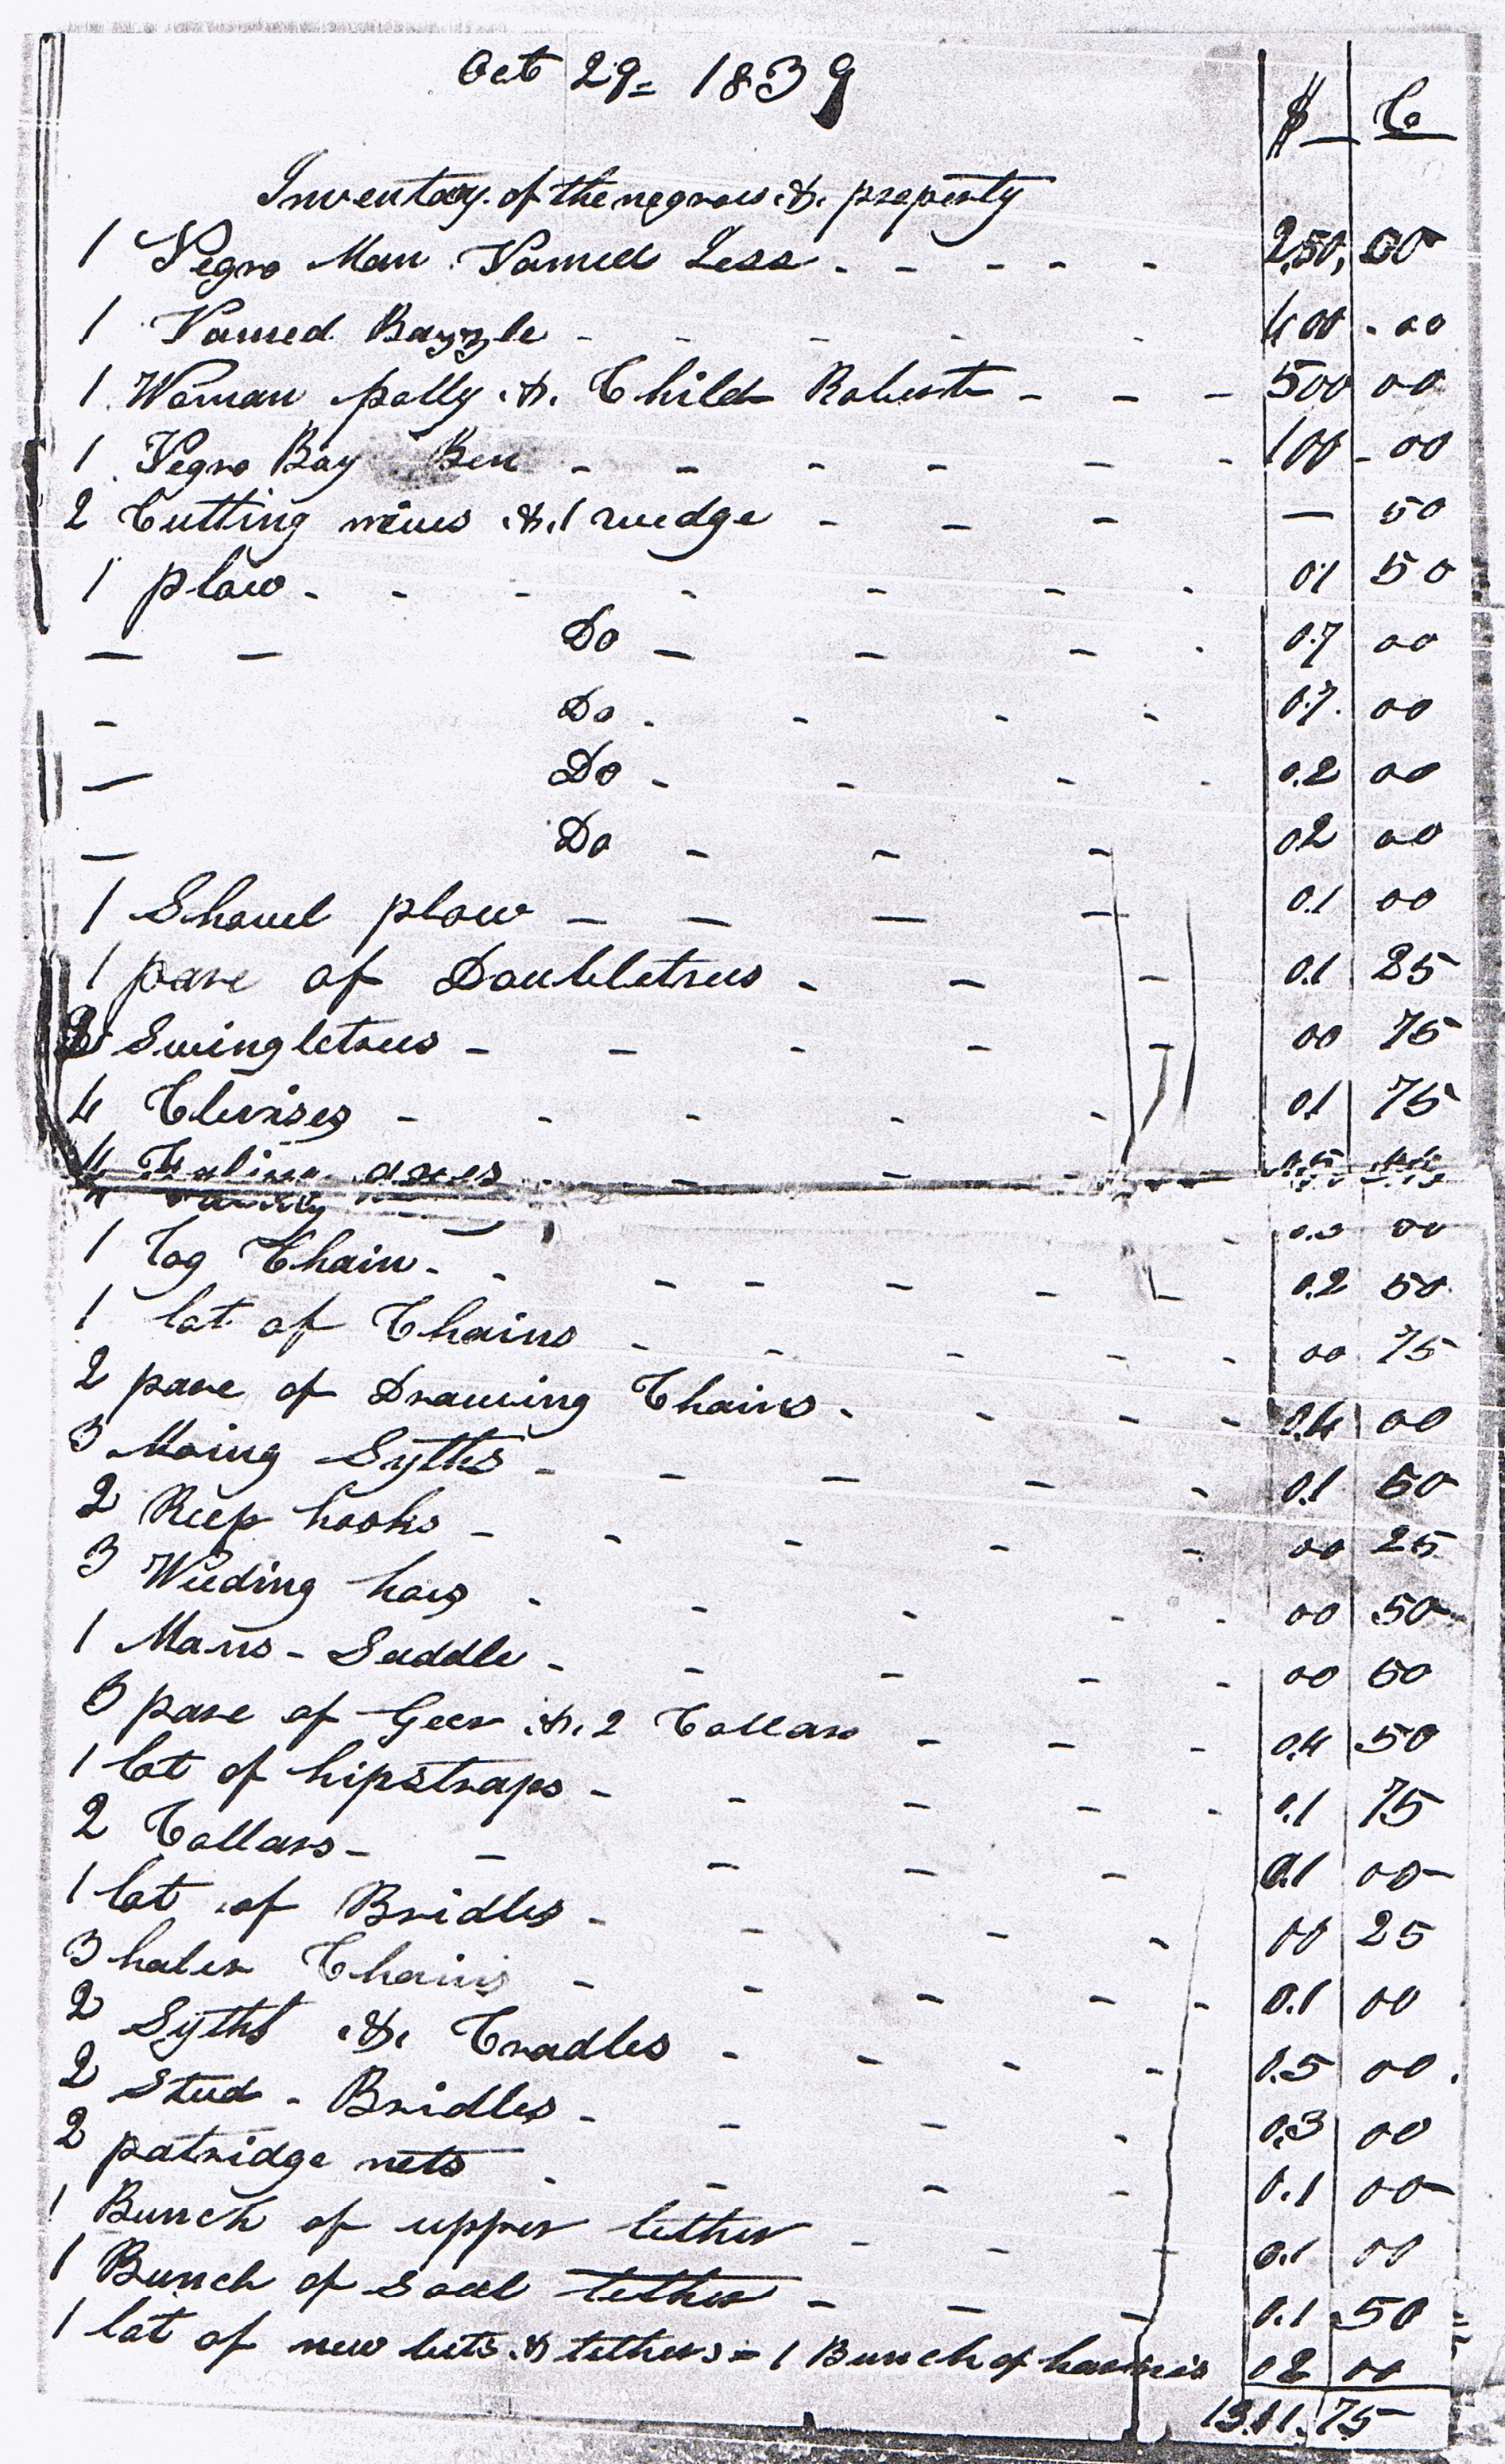 Oct 29= 1839
$ C
Inventory of the negroes & property
1 Negro Man Named Less - - - - - 250, 00
1 Named Bazzle - - - - - 400 - 00
1 Woman polly & Child Robert - - - 500 00
1 Negro Boy Ben - - - - - - 100 - 00
2 Cutting & 1 - - - — 50
1 plow - - - - - - - 01 50
— — Do — - - . 0.7 00
- Do - - - - 0.7. 00
— Do - - - - 0.2 00
— Do - - - 02 00
1 Shovel plow — — — — 0.1 00
1 pare of Doubletrees - - - 0.1 25
Swingletrees - - - - - 00 75
4 Clevises - - - - - 0.1 75
4 axes - - - -
00
1 log Chain - - - - - - - 0.2 50
1 lot of Chains - - - - - 00 75
2 pare of Drawing Chains - - - - 0.4 00
3 Moing Syths - - - - - 0.1 50
2 Reep hooks - - - - - 00 25
3 Weeding hoes - - - - - 00 50
1 Mans - Saddle - - - - - 00 50
3 pare of Geer & 2 Collars - - - 0.4 50
1 lot of hipstraps - - - - - 0.1 75
2 Collars - - - - - 0.1 00
1 lot of Bridles - - - - 00 25
3 haler Chains - - - - - 0.1 00
2 Syths & Cradles - - - - 0.5 00
2 Stud - Bridles - - - - 0.3 00
2 patridge nets - - - - 0.1 00
1 Bunch of upper lether - - - 0.1 00
1 Bunch of Soal lether - - - 0.1 50
1 lot of new & lethers = 1 Bunch of 02 00
13.11.75